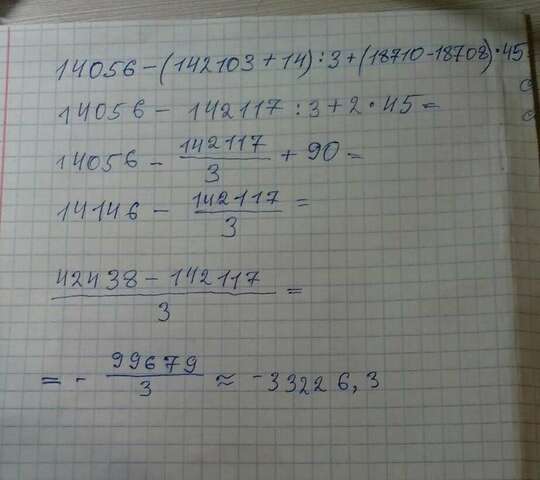 14056-(142103+14):3+(18710-18708)·45
14056- 142117:3+2·45=
14056- 142117/3 +90=
14146- 142117/3 =
42438-142117/3 =
=- 99679/3 ≈ -33226,3